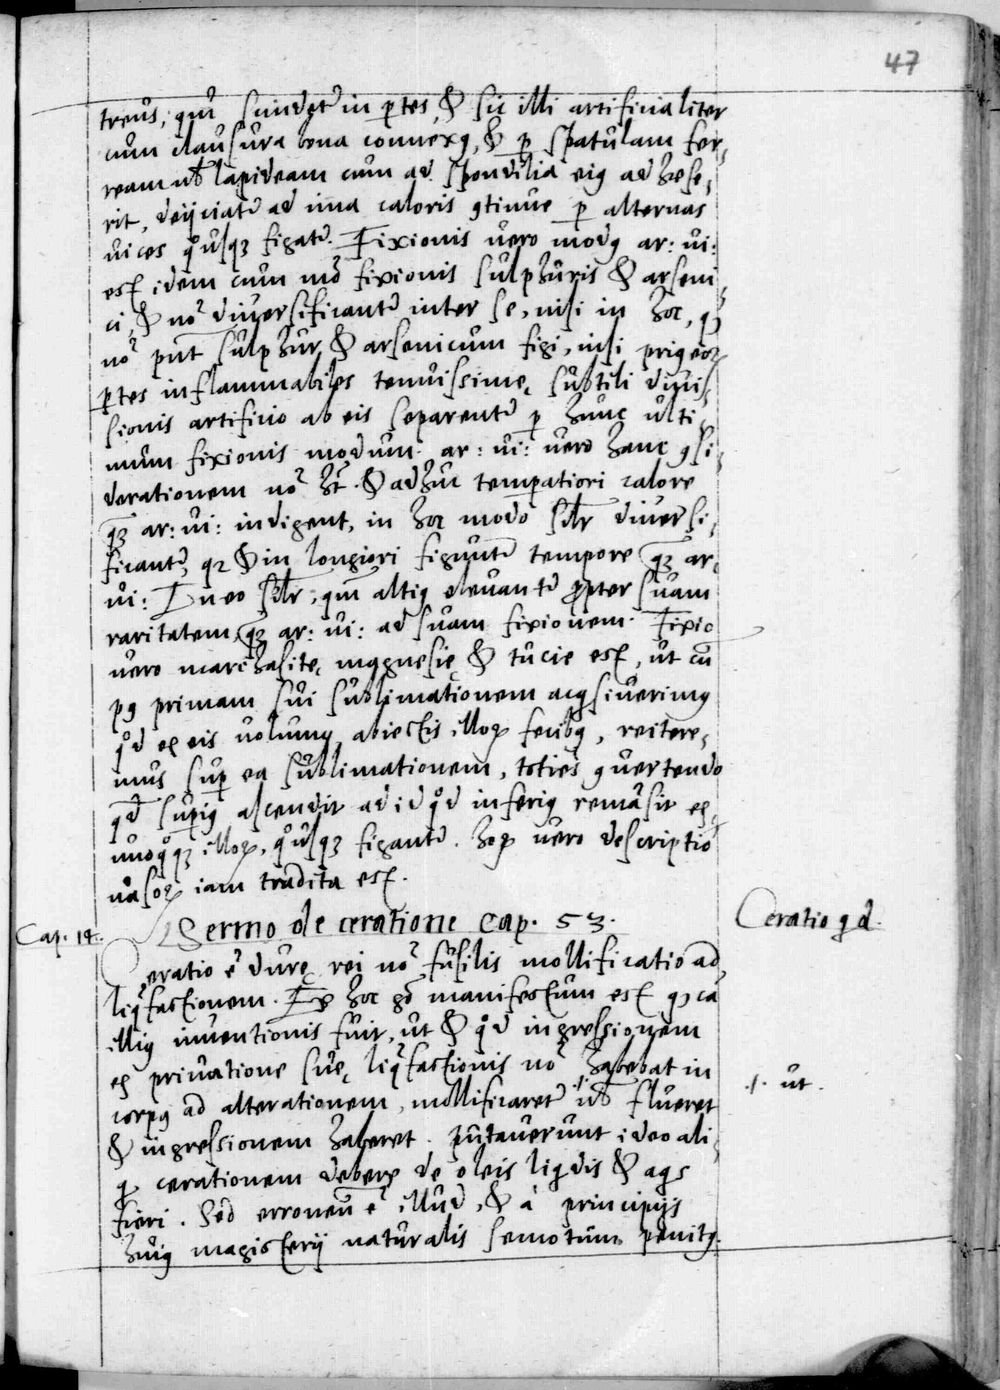 47
treus, qui scindet͂ in p̱tes, & sic illi artificialiter
cum clausura bona connexꝯ, & ꝑ spatulam fer,
ream ub̄ lapideam cum ad spondilia eiꝯ adhese,
rit, deijciat͂ ad ima caloris ꝯtinue ꝑ alternas
uices qͦusqꝫ figat͂. Fixionis vero modꝯ ar: ui:
est idem cum mō fixionis sulphuris & arseni,
ci, & nō diuersificant͂ inter se, nisi in hoc, ꝙ
nō pn̄t sulphur & arsenicum figi, nisi priꝯ eoꝝ
p̱tes inflammabiles tenuissimę subtili diuis,
sionis artificio ab eis separent͂ ꝑ hunc ulti,
mum fixionis modum. ar: ui: vero hanc ꝯsi,
derationem nō hn̄t. & adhuc temperatiori calore
qꝫ ar: ui: indigent, in hoc modo sil̄r diuersi,
ficant͂, qꝛ & in longiori figunt͂ tempore qꝫ ar,
ui: In eo sil̄r, qm̄ altiꝯ eleuant͂ ꝓpter suam
raritatem, qꝫ ar: ui: ad suam fixionem. Fixio
vero marchasitę, magnesię & tucie est, ut cū
pꝯ primam sui sublimationem acqsiuerimꝯ
qͦd ex eis uolumꝯ, abiectis illoꝝ fecibꝯ, reitere,
mus suꝑ ea sublimationem, toties ꝯuertendo
qd̄ suꝑiꝯ ascendit ad id qͦd inferiꝯ remāsit ex
unoqͦqꝫ illoꝝ, qͦusqꝫ figant͂. hoꝝ vero descriptio
uasoꝝ iam tradita est.
Cap. 14. Sermo de ceratione Cap. 53.
Ceratio qd.
Ceratio ē durę rei nō fusilis mollificatio ad
liq̄factionem. Ex hoc gͦ manifestum est ꝙ cā
illiꝯ inuentionis fuit, ut & qͦd ingressionem
ex priuatione suę liq̄factionis nō habebat in
corpꝯ ad alterationem, mollificaret͂ ub̄ flueret
./. ut.
& ingressionem haberet. putauerunt ideo ali,
q cerationem debere de oleis liqdis & aqs
fieri. Sed erroneū ē illud, & à principijs
huiꝯ magisterij naturalis semotum penitꝯ.